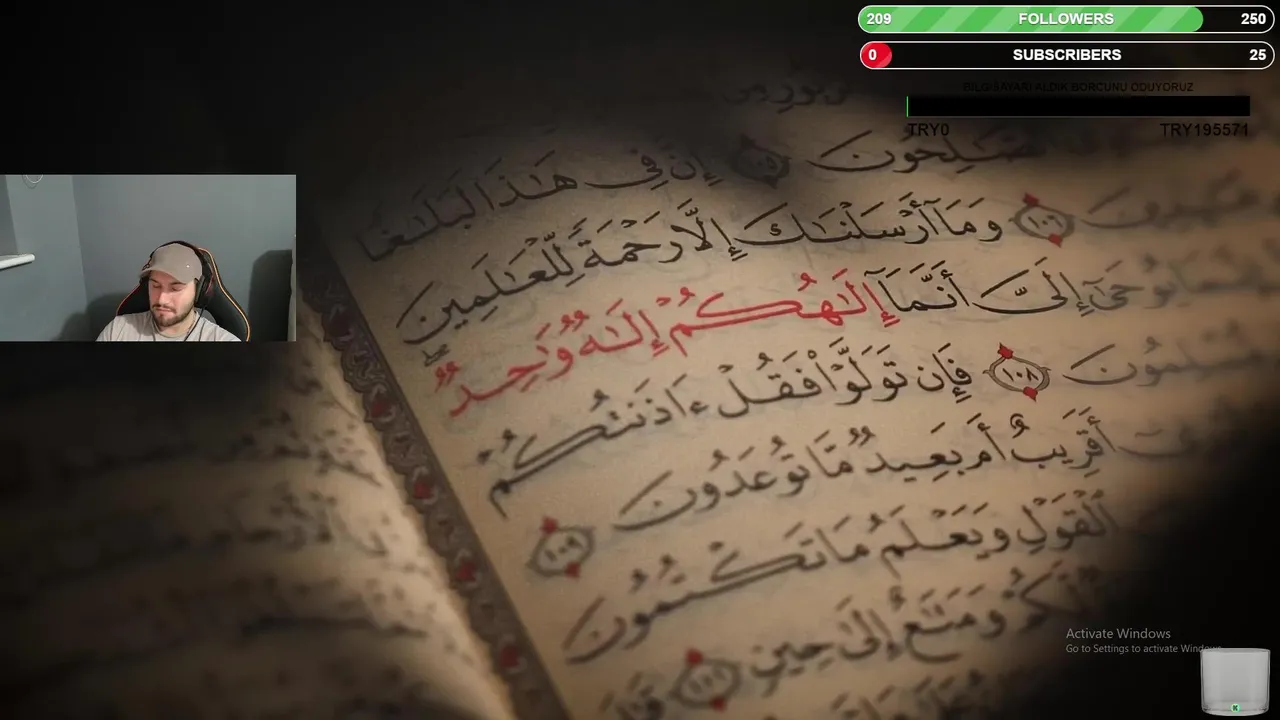 209 FOLLOWERS 250
0 SUBSCRIBERS 25
BILGISAYARI ALDIK BORCUNU ODUYORUZ
TRY0 TRY195571
إِنَّ فِى هَـٰذَا لَبَلَـٰغًا
وَمَآ أَرْسَلْنَـٰكَ إِلَّا رَحْمَةً لِّلْعَـٰلَمِينَ ١٠٧
يُوحَىٰٓ إِلَىَّ أَنَّمَآ إِلَـٰهُكُمْ إِلَـٰهٌ وَٰحِدٌ
مُّسْلِمُونَ ١٠٨ فَإِن تَوَلَّوْا۟ فَقُلْ ءَاذَنتُكُمْ
أَقَرِيبٌ أَم بَعِيدٌ مَّا تُوعَدُونَ ١٠٩
ٱلْقَوْلِ وَيَعْلَمُ مَا تَكْتُمُونَ
لَّكُمْ وَمَتَـٰعٌ إِلَىٰ حِينٍ ١١١
Activate Windows
Go to Settings to activate Windows